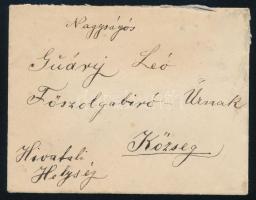 Nagyságós
Leó
Főszolgabiró Úrnak
Kőszeg
Hivatali
Helység